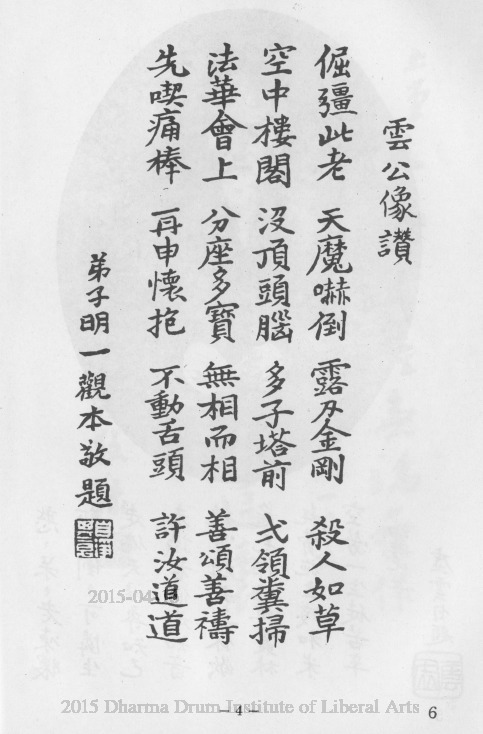 雲公像讚
倔彊此老 天魔嚇倒 露刄金剛 殺人如草
空中樓閣 沒頂頭腦 多子塔前 弍領糞掃
法華會上 分座多寶 無相而相 善頌善禱
先喫痛棒 再申懷抱 不動舌頭 許汝道道
弟子明一觀本敬題
2015-04
2015 Dharma Drum Institute of Liberal Arts
—4—
6